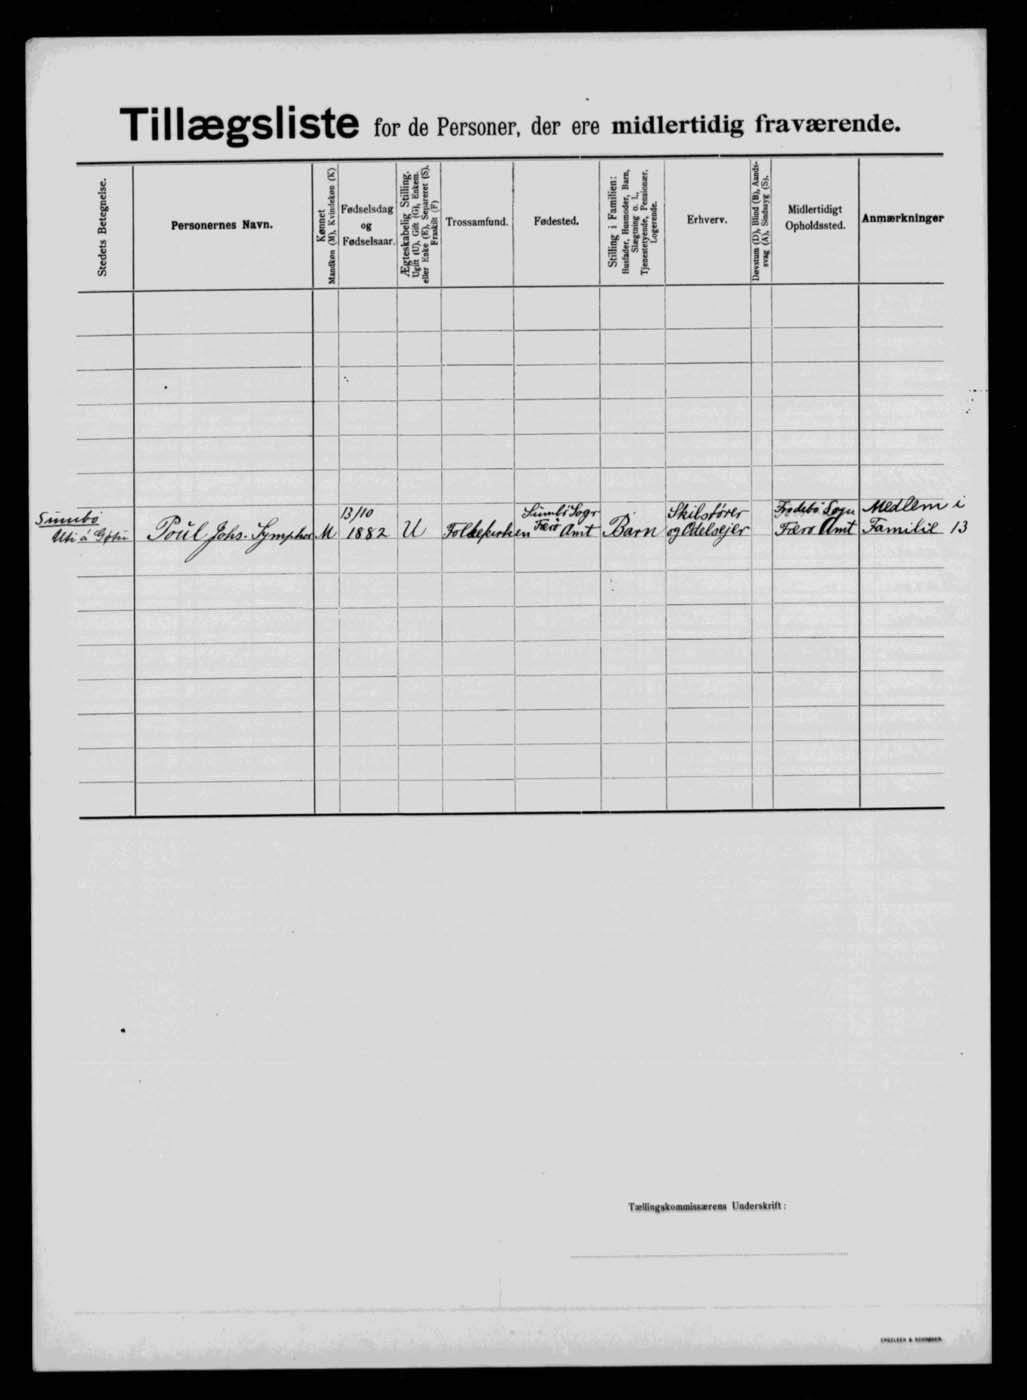 Tillægsliste for de Personer, der ere midlertidig fraværende.
Stedets Betegnelse.
Personernes Navn.
Kønnet
Mandkøn (M), Kvindekøn (K)
Fødselsdag
og
Fødselsaar.
Ægteskabelig Stilling.
Ugift (U), Gift (G), Enkem.
eller Enke (E), Separeret (S),
Fraskilt (F)
Trossamfund.
Fødested.
Stilling i Familien:
Husfader, Husmoder, Barn,
Slægtning o. l.,
Tjenestetyende, Pensionær,
Logerende.
Erhverv.
Døvstum (D), Blind (B), Aands-
svag (A), Sindssyg (S).
Midlertidigt
Opholdssted.
Anmærkninger
Sumbø
Uti á
Poül Johs.
M
13/10
1882
U
Folkekirken
Sumbö Sogn
Færö Amt
Barn
Skibsfører
og Odelsejer
Sogn
Færö Amt
Medlem i
Familie 13
Tællingskommissærens Underskrift: